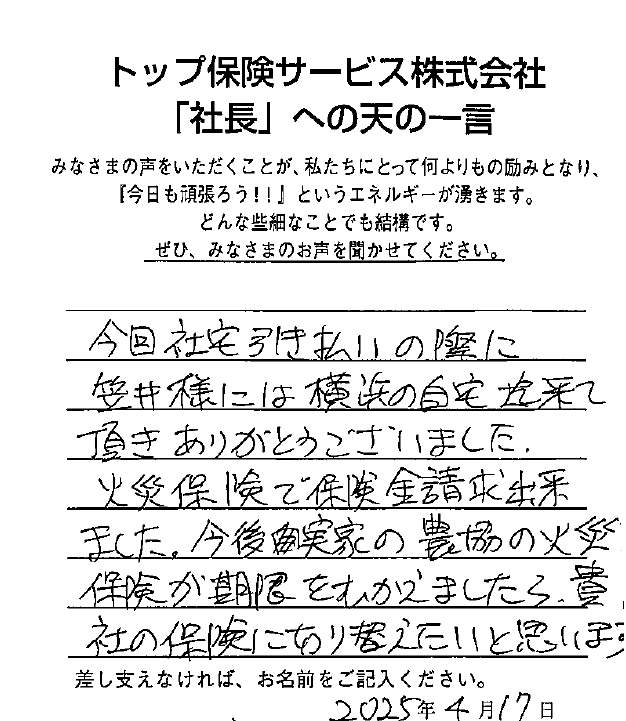 トップ保険サービス株式会社
「社長」への天の一言
みなさまの声をいただくことが、私たちにとって何よりもの励みとなり、
『今日も頑張ろう！！』というエネルギーが湧きます。
どんな些細なことでも結構です。
ぜひ、みなさまのお声を聞かせてください。
今回社宅引き払いの際に
笠井様には横浜の自宅迄来て
頂きありがとうございました。
火災保険で保険金請求出来
ました。今後実家の農協の火災
保険が期限をむかえましたら、貴
社の保険に切り替えたいと思います
差し支えなければ、お名前をご記入ください。
2025年4月17日